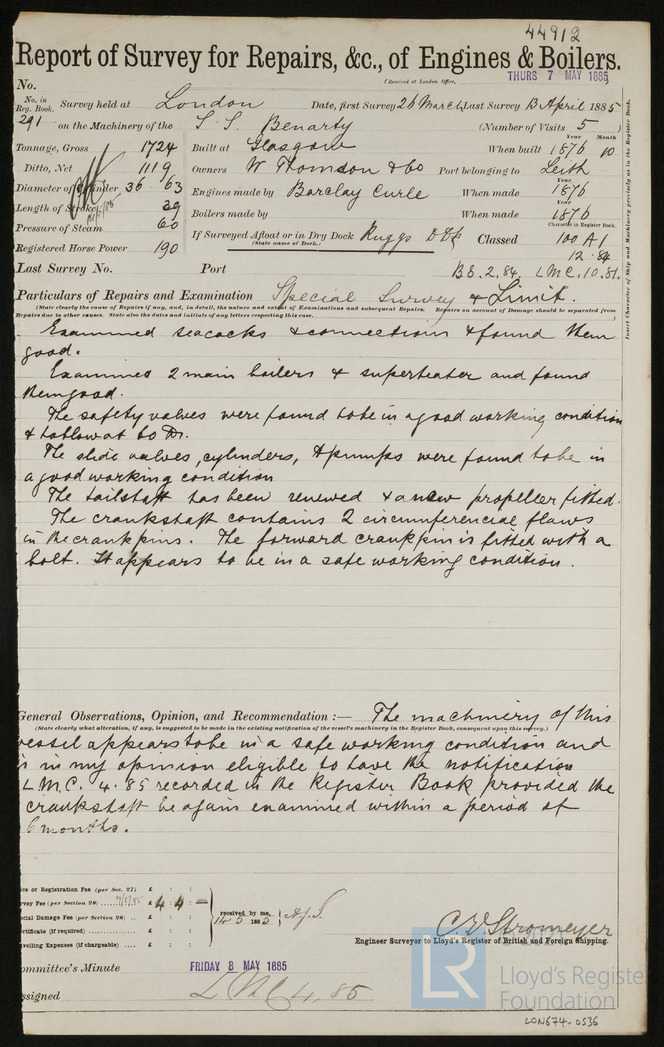 44912
Report of Survey for Repairs, &c., of Engines & Boilers.
(Received at London Office, THURS 7 MAY 1885
No.
No. in Reg. Book. Survey held at London Date, first Survey 26 March Last Survey 13 April 1885
291 on the Machinery of the S.S. Benarty (Number of Visits 5)
Tonnage, Gross 1724 Built at Glasgow When built Year 1876 Month 10
Ditto, Net 1119 Owners W Thomson & Co Port belonging to Leith
Diameter of Cylinder 36 63 Engines made by Barclay Curle When made Year 1876
Length of Stroke 39 Boilers made by When made Year 1876
Pressure of Steam 60 If Surveyed Afloat or in Dry Dock Classed Character in Register Book. 100 A1
(State name of Dock.)
Registered Horse Power 190 12.84
Last Survey No. Port BS.2.84. LMC.10.81.
Insert Character of Ship and Machinery precisely as in the Register Book.
Particulars of Repairs and Examination Special Survey & Limit.
(State clearly the cause of Repairs if any, and, in detail, the nature and extent of Examinations and subsequent Repairs. Repairs on account of Damage should be separated from
Repairs due to other causes. State also the dates and initials of any letters respecting this case.
Examined seacocks & connections & found them
good.
Examined 2 main boilers & superheater and found
them good.
The safety valves were found to be in a good working condition
& to blow at 60 lbs.
The slide valves, cylinders, & pumps were found to be in
a good working condition
The tailshaft has been renewed & a new propeller fitted.
The crankshaft contains 2 circumferencial flaws
in the crankpins. The forward crankpin is fitted with a
bolt. It appears to be in a safe working condition.
General Observations, Opinion, and Recommendation :— The machinery of this
(State clearly what alteration, if any, is suggested to be made in the existing notification of the vessel's machinery in the Register Book, consequent upon this survey.)
vessel appears to be in a safe working condition and
is in my opinion eligible to have the notification
L.M.C. 4.85 recorded in the Register Book provided the
crankshaft be again examined within a period of
6 months.
or Registration Fee (per Sec. 27) £ : :
Fee (per Section 28) £ 4 : 4 :
Damage Fee (per Section 28) £ : :
(if required) £ : :
Expenses (if chargeable) £ : :
received by me, 188
C.E. Stromeyer
Engineer Surveyor to Lloyd's Register of British and Foreign Shipping.
Committee's Minute FRIDAY 8 MAY 1885
Assigned LMC 4.85
LR
Lloyd's Register
Foundation
LON674-0536